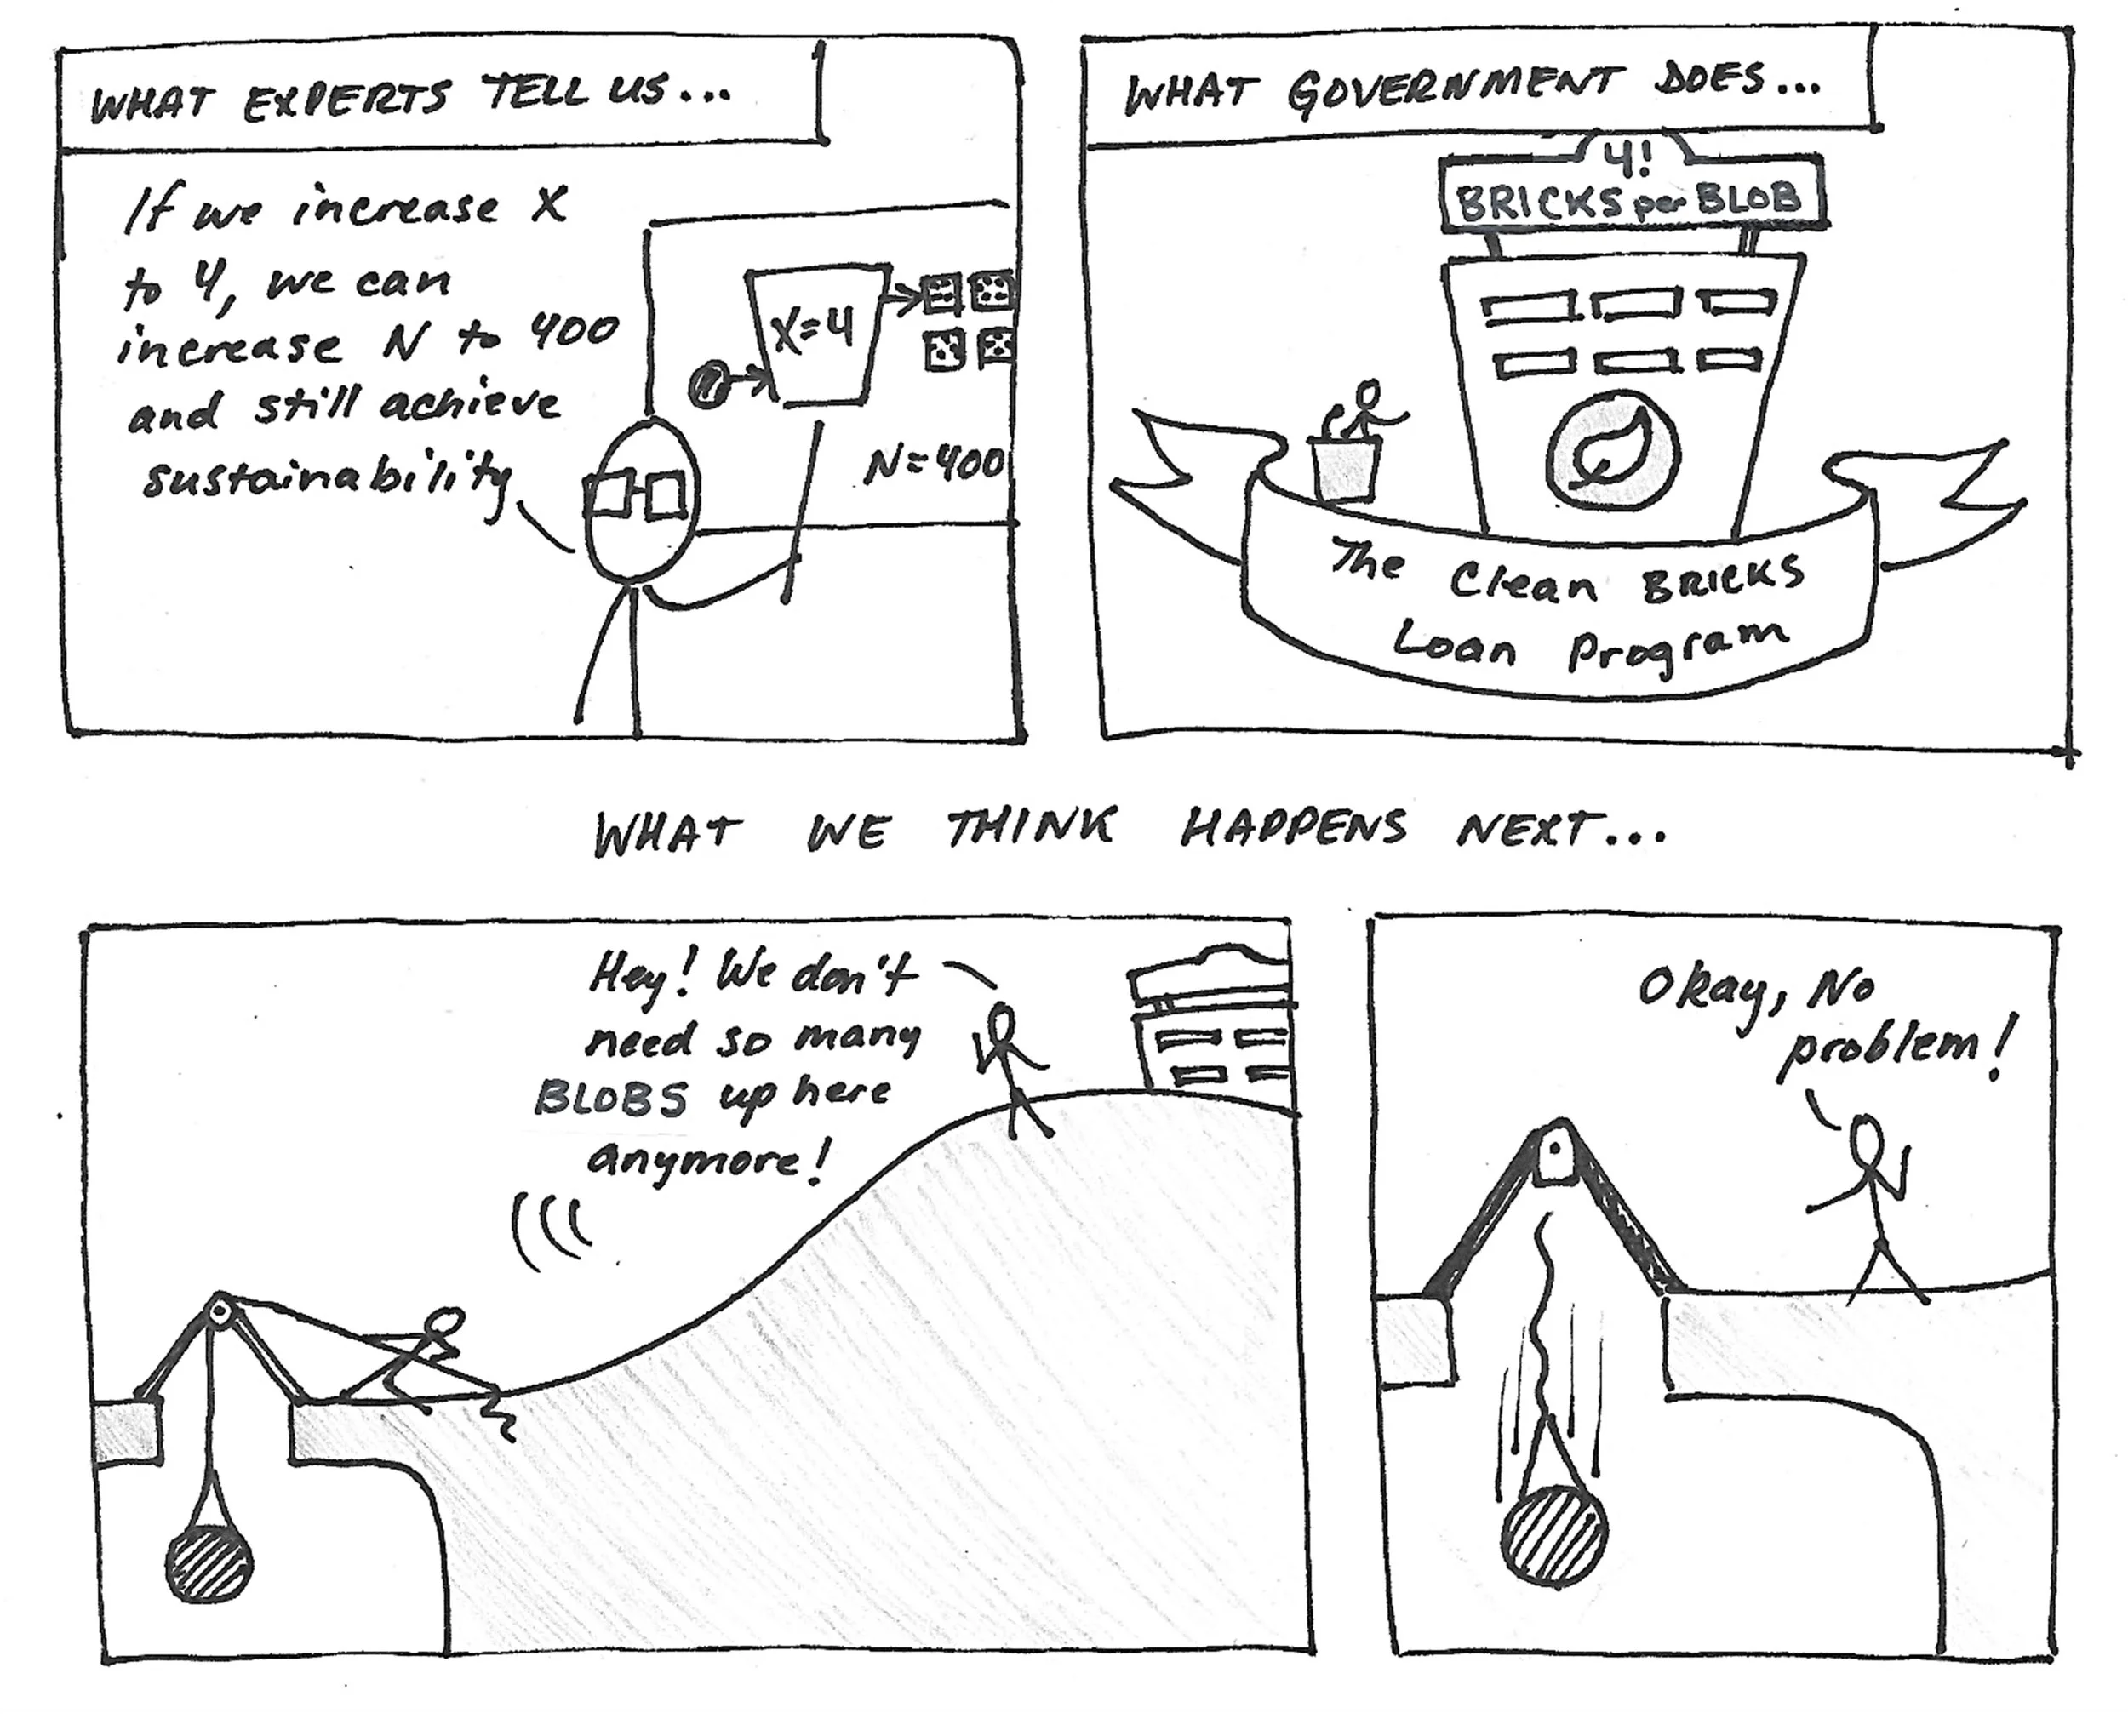 WHAT EXPERTS TELL US...
If we increase X
to 4, we can
increase N to 400
and still achieve
sustainability
X=4
N=400
WHAT GOVERNMENT DOES...
4!
BRICKS per BLOB
The Clean BRICKS
Loan Program
WHAT WE THINK HAPPENS NEXT...
Hey! We don't
need so many
BLOBS up here
anymore!
Okay, No
problem!